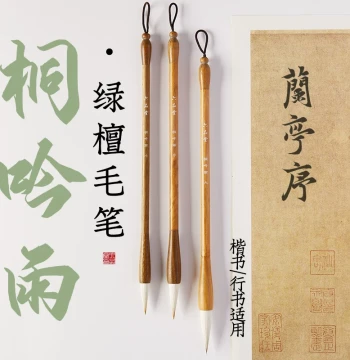 桐吟雨
·绿檀毛笔
楷书/行书适用
蘭亭序